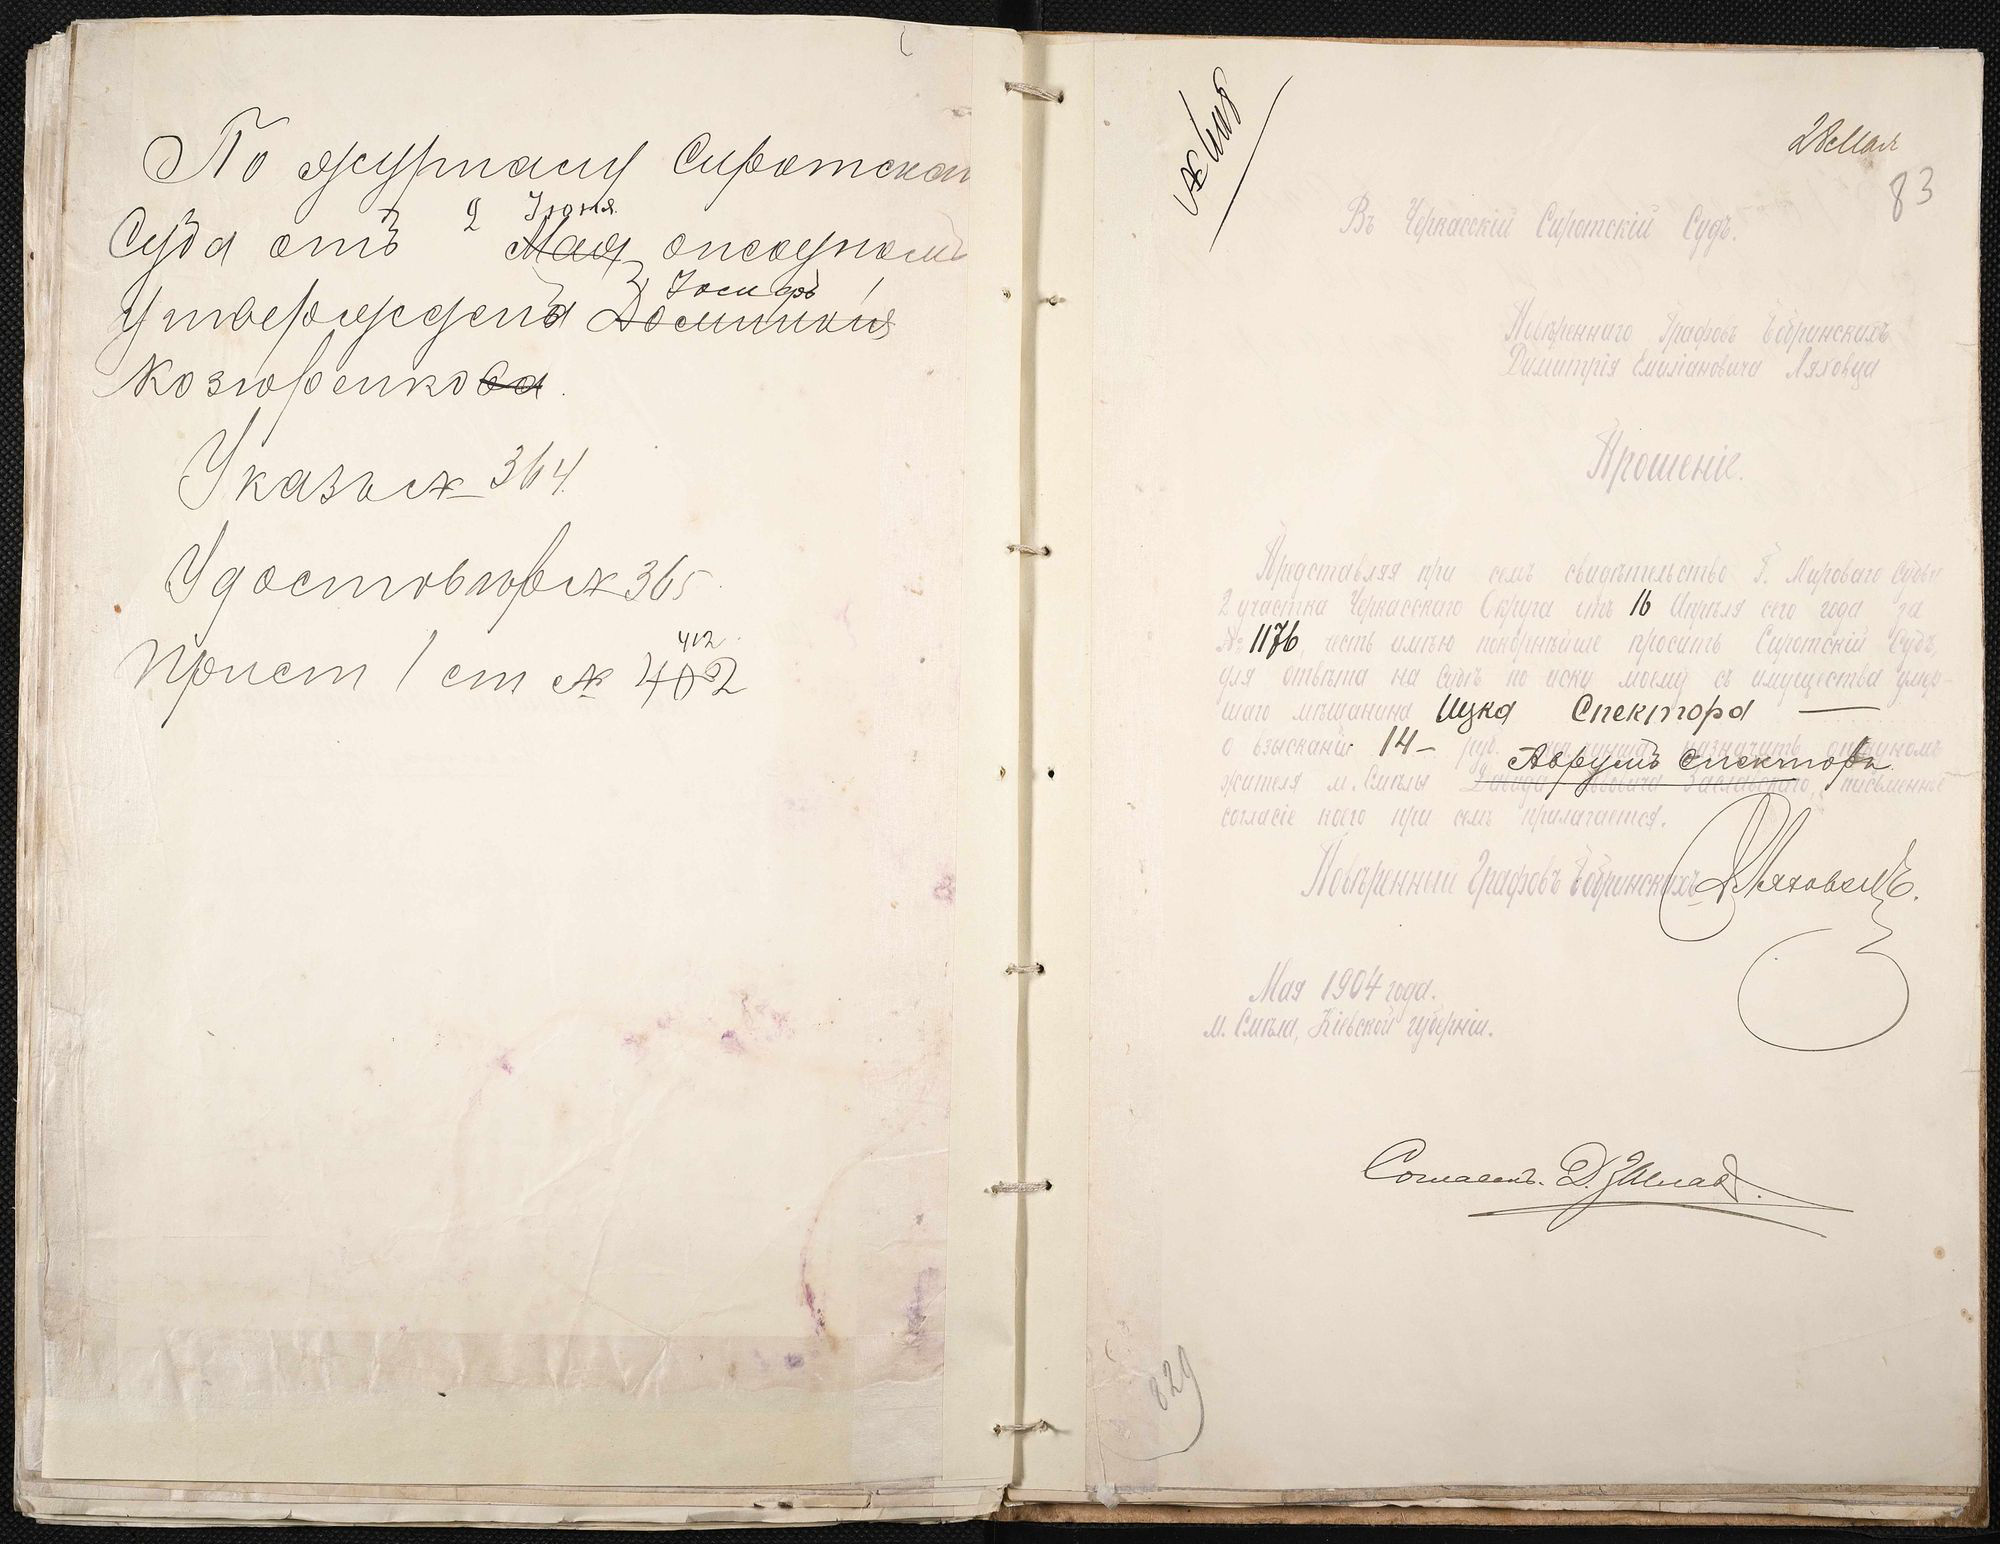 По журналу Сиротскаго
Суда отъ 9 Іюня Мая опекуномъ
утвержденъ Іосифъ
Козюренкова.
Указъ № 364.
Удостовѣр № 365.
Прист 1 ст № 402 412
28 Мая
83
Въ Черкасскій Сиротскій Судъ.
Повѣреннаго Графовъ Бобринскихъ
Димитрія Емиліановича Ляховца
Прошеніе.
Представляя при семъ свидѣтельство Г. Мирового Судьи
2 участка Черкасскаго Округа отъ 16 Апрѣля сего года за
№ 1176, честь имѣю покорнѣйше просить Сиротскій Судъ,
для отвѣта на судѣ по иску моему съ имущества умер-
шаго мѣщанина Ицка Спектора —
о взысканіи 14 – руб. назначить опекуномъ
Аврумъ Спекторъ
жителя м. Смѣлы Давида Заславскаго, письменное
согласіе коего при семъ прилагается.
Повѣренный Графовъ Бобринскихъ Д. Ляховецъ.
Мая 1904 года.
м. Смѣла, Кіевской губерніи.
Согласенъ. Д. Заслав.
829